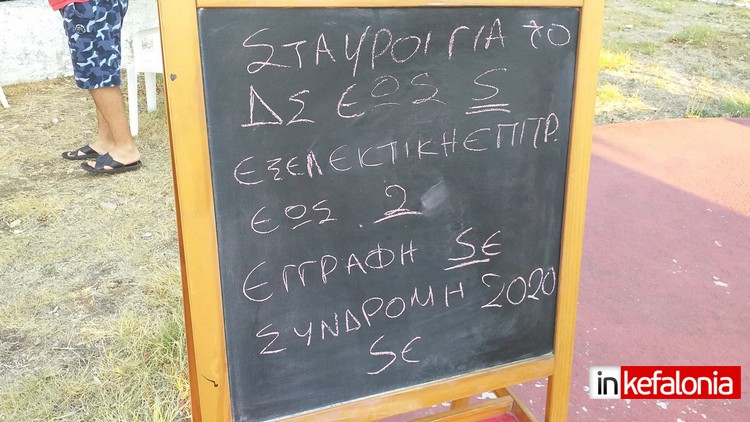 ΣΤΑΥΡΟΙ ΓΙΑ ΤΟ
ΔΣ ΕΩΣ 5
ΕΞΕΛΕΚΤΙΚΗ ΕΠΙΤΡ.
ΕΩΣ 2
ΕΓΓΡΑΦΗ 5€
ΣΥΝΔΡΟΜΗ 2020
5€
inkefalonia